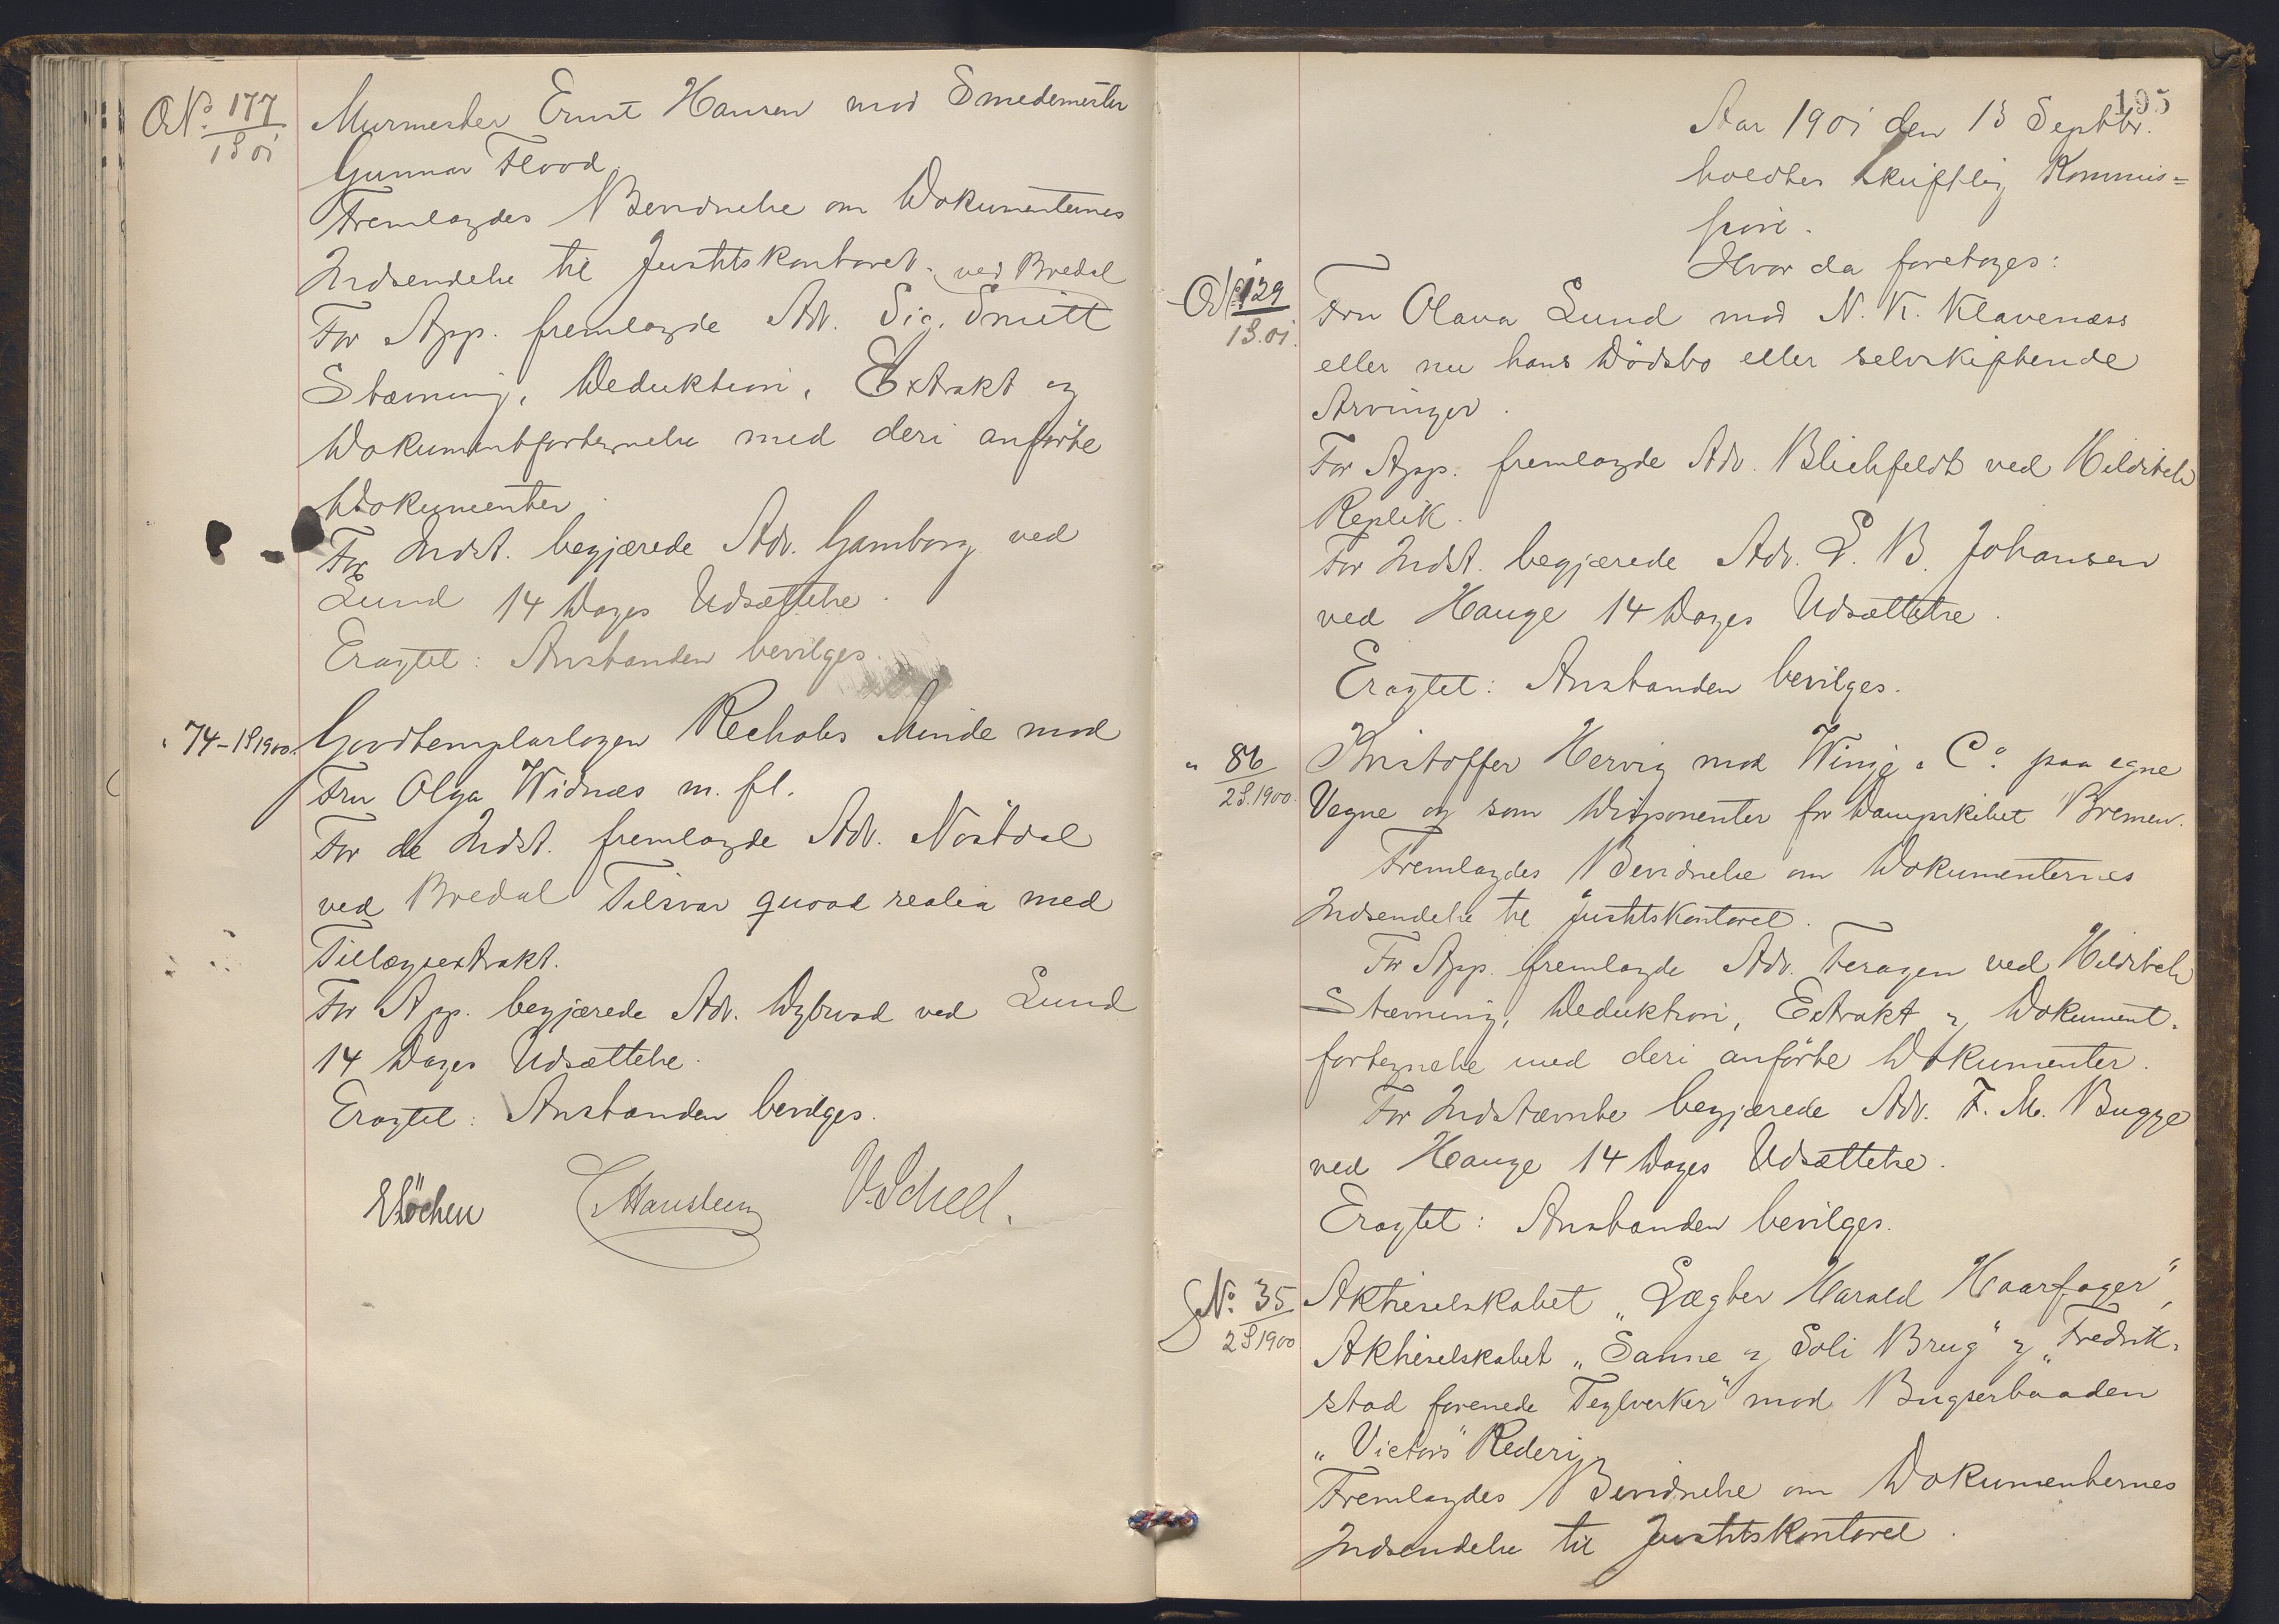 O.N.º 177
1S 01
Murmester Ernst Hansen mod Smedemester
Gunnar Flood
Fremlagdes Bevidnelse om Dokumenternes
Indsendelse til Justitskontoret.
For App. fremlagde Adv. Sig. Smitt ved Bredal
Stævning, Deduktion, Extrakt og
Dokumentfortegnelse med deri anførte
Dokumenter.
For Indst. begjærede Adv. Gamborg ved
Lund 14 Dages Udsættelse.
Eragtet: Anstanden bevilges.
" 74-1S1900.
Goodtemplarlogen Rechabs Minde mod
Fru Olga Widnæs m. fl.
For de Indst. fremlagde Adv. Nöstdal
ved Bredal Tilsvar quoad realia med
Tillægsextrakt.
For App. begjærede Adv. Dybwad ved Lund
14 Dages Udsættelse.
Eragtet: Anstanden bevilges.
V. Scheel.
195
Aar 1901 den 13 Septbr.
holdtes skriftlig Kommis=
sion.
Hvor da foretoges:
O.N.º 129
1S.01.
Fru Olava Lund mod N. K. Klavenæss
eller nu hans Dödsbo eller selvskiftende
Arvinger.
For App. fremlagde Adv. Blichfeldt ved Hilditch
Replik.
For Indst. begjærede Adv. L. B. Johansen
ved Hauge 14 Dages Udsættelse.
Eragtet: Anstanden bevilges.
" 86
2S.1900.
Kristoffer Hervig mod Winge & Cº paa egne
Vegne og som Disponenter for Dampskibet Bremen.
Fremlagdes Bevidnelse om Dokumenternes
Indsendelse til Justitskontoret.
For App. fremlagde Adv. Feragen ved Hilditch
Stævning, Deduktion, Extrakt og Dokument-
fortegnelse med deri anförte Dokumenter.
For Indstævnte begjærede Adv. F. M. Bugge
ved Hauge 14 Dages Udsættelse.
Eragtet: Anstanden bevilges.
S.N.º 35
2S1900
Aktieselskabet "Lægter Harald Haarfager",
Aktieselskabet "Sanne og Soli Brug" og "Fredrik-
stad forenede Teglverker" mod Bugserbaaden
"Victors" Rederi.
Fremlagdes Bevidnelse om Dokumenternes
Indsendelse til Justitskontoret.